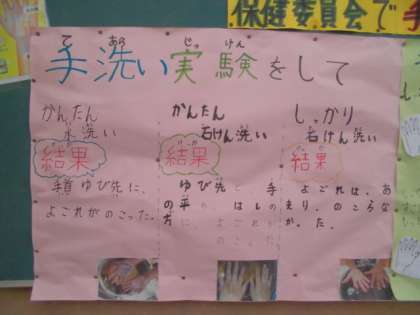 保健委員会で手
て あら じっ けん
手洗い実験をして
かんたん
水洗い
結果
手首ゆび先に、
よごれがのこった。
かんたん
石けん洗い
結果
ゆび先と手
の平のはしの
方に
よごれ
のこ
しっかり
石けん洗い
結果
よごれは、あ
まり、のこらな
かった。